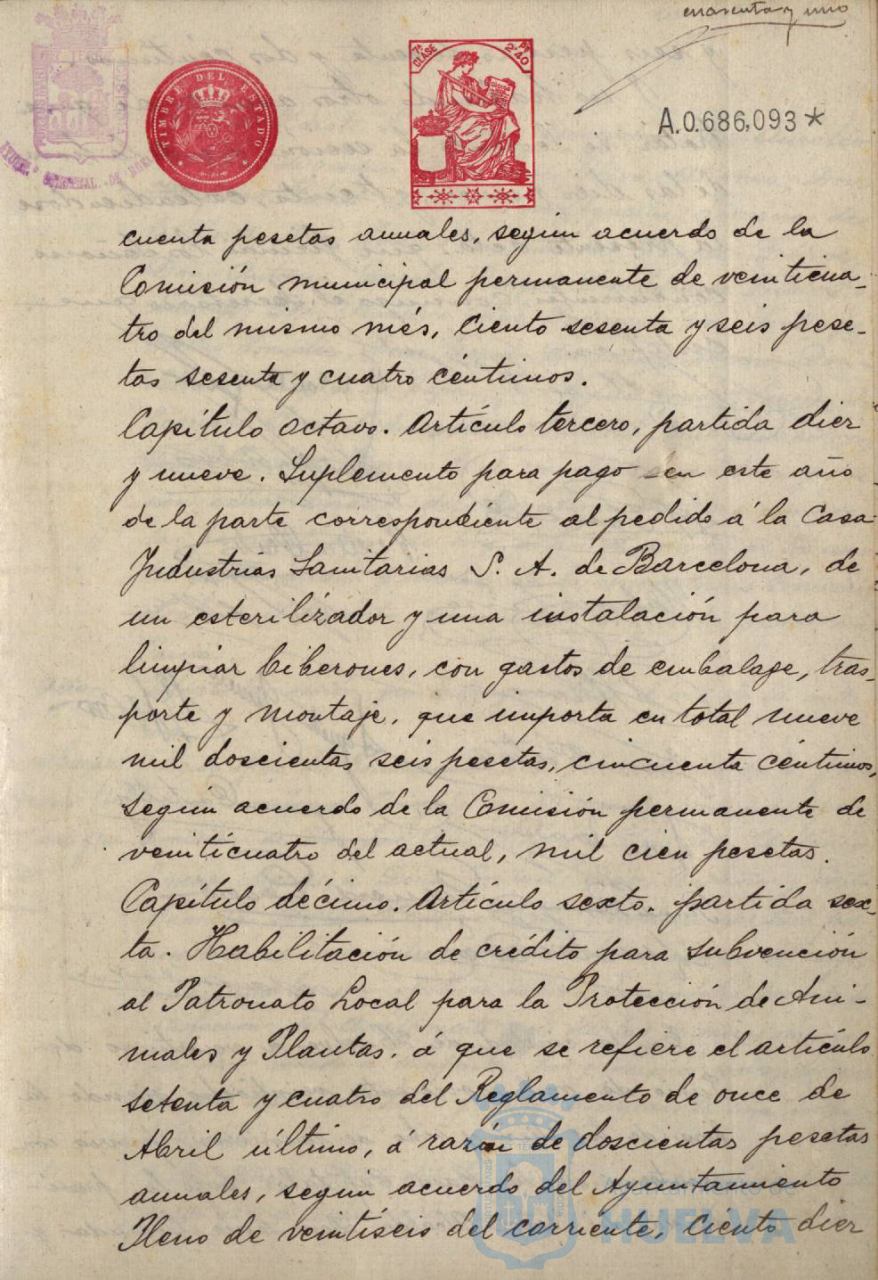 cuarenta y uno
TIMBRE DEL ESTADO
7ª CLASE
2'40
A.0.686,093 *
cuenta pesetas anuales, según acuerdo de la
Comisión municipal permanente de veinticua-
tro del mismo més, Ciento sesenta y seis pese-
tas sesenta y cuatro céntimos.
Capítulo octavo. Artículo tercero, partida diez
y nueve. Suplemento para pago en este año
de la parte correspondiente al pedido á la Casa
Industrias Sanitarias S. A. de Barcelona, de
un esterilizador y una instalación para
limpiar biberones, con gastos de embalage, tras-
porte y montaje, que importa en total nueve
mil doscientas seis pesetas, cincuenta céntimos,
según acuerdo de la Comisión permanente de
veinticuatro del actual, mil cien pesetas.
Capítulo décimo. Artículo sexto. partida sex-
ta. Habilitación de crédito para subvención
al Patronato Local para la Protección de Ani-
males y Plantas. á que se refiere el artículo
setenta y cuatro del Reglamento de once de
Abril último, á razón de doscientas pesetas
anuales, según acuerdo del Ayuntamiento
Pleno de veintiseis del corriente, Ciento diez
HUELVA